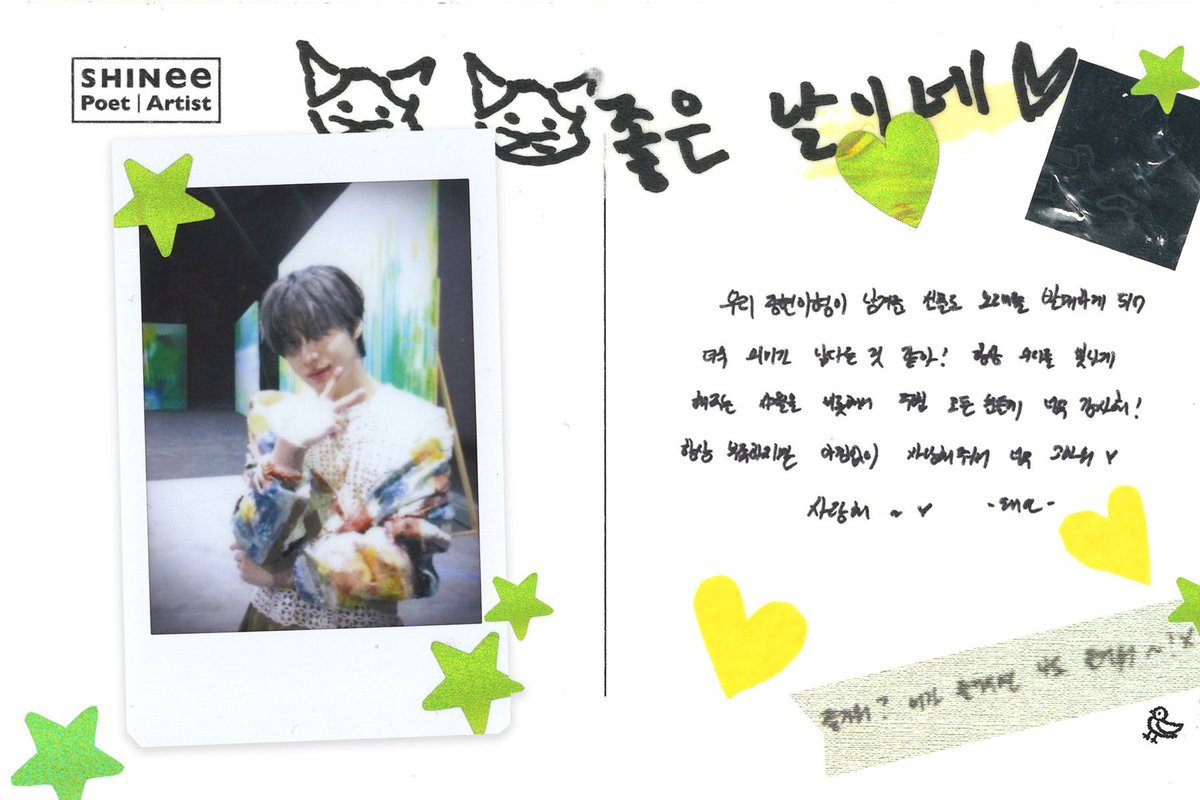 SHINee
Poet | Artist
좋은 날이네
우리 종현이형이 남겨준 선물로 오래만에 발매하게 되어
더욱 의미가 남다른 것 같아! 항상 우리를 빛나게
해주는 사월을 비롯해서 주변 모든 분들께 너무 감사해!
항상 부족하지만 아낌없이 사랑해주어 너무 고마워
사랑해 ~ -태민-
즐거워? 너가 즐거우면 나도 즐거워 ~!